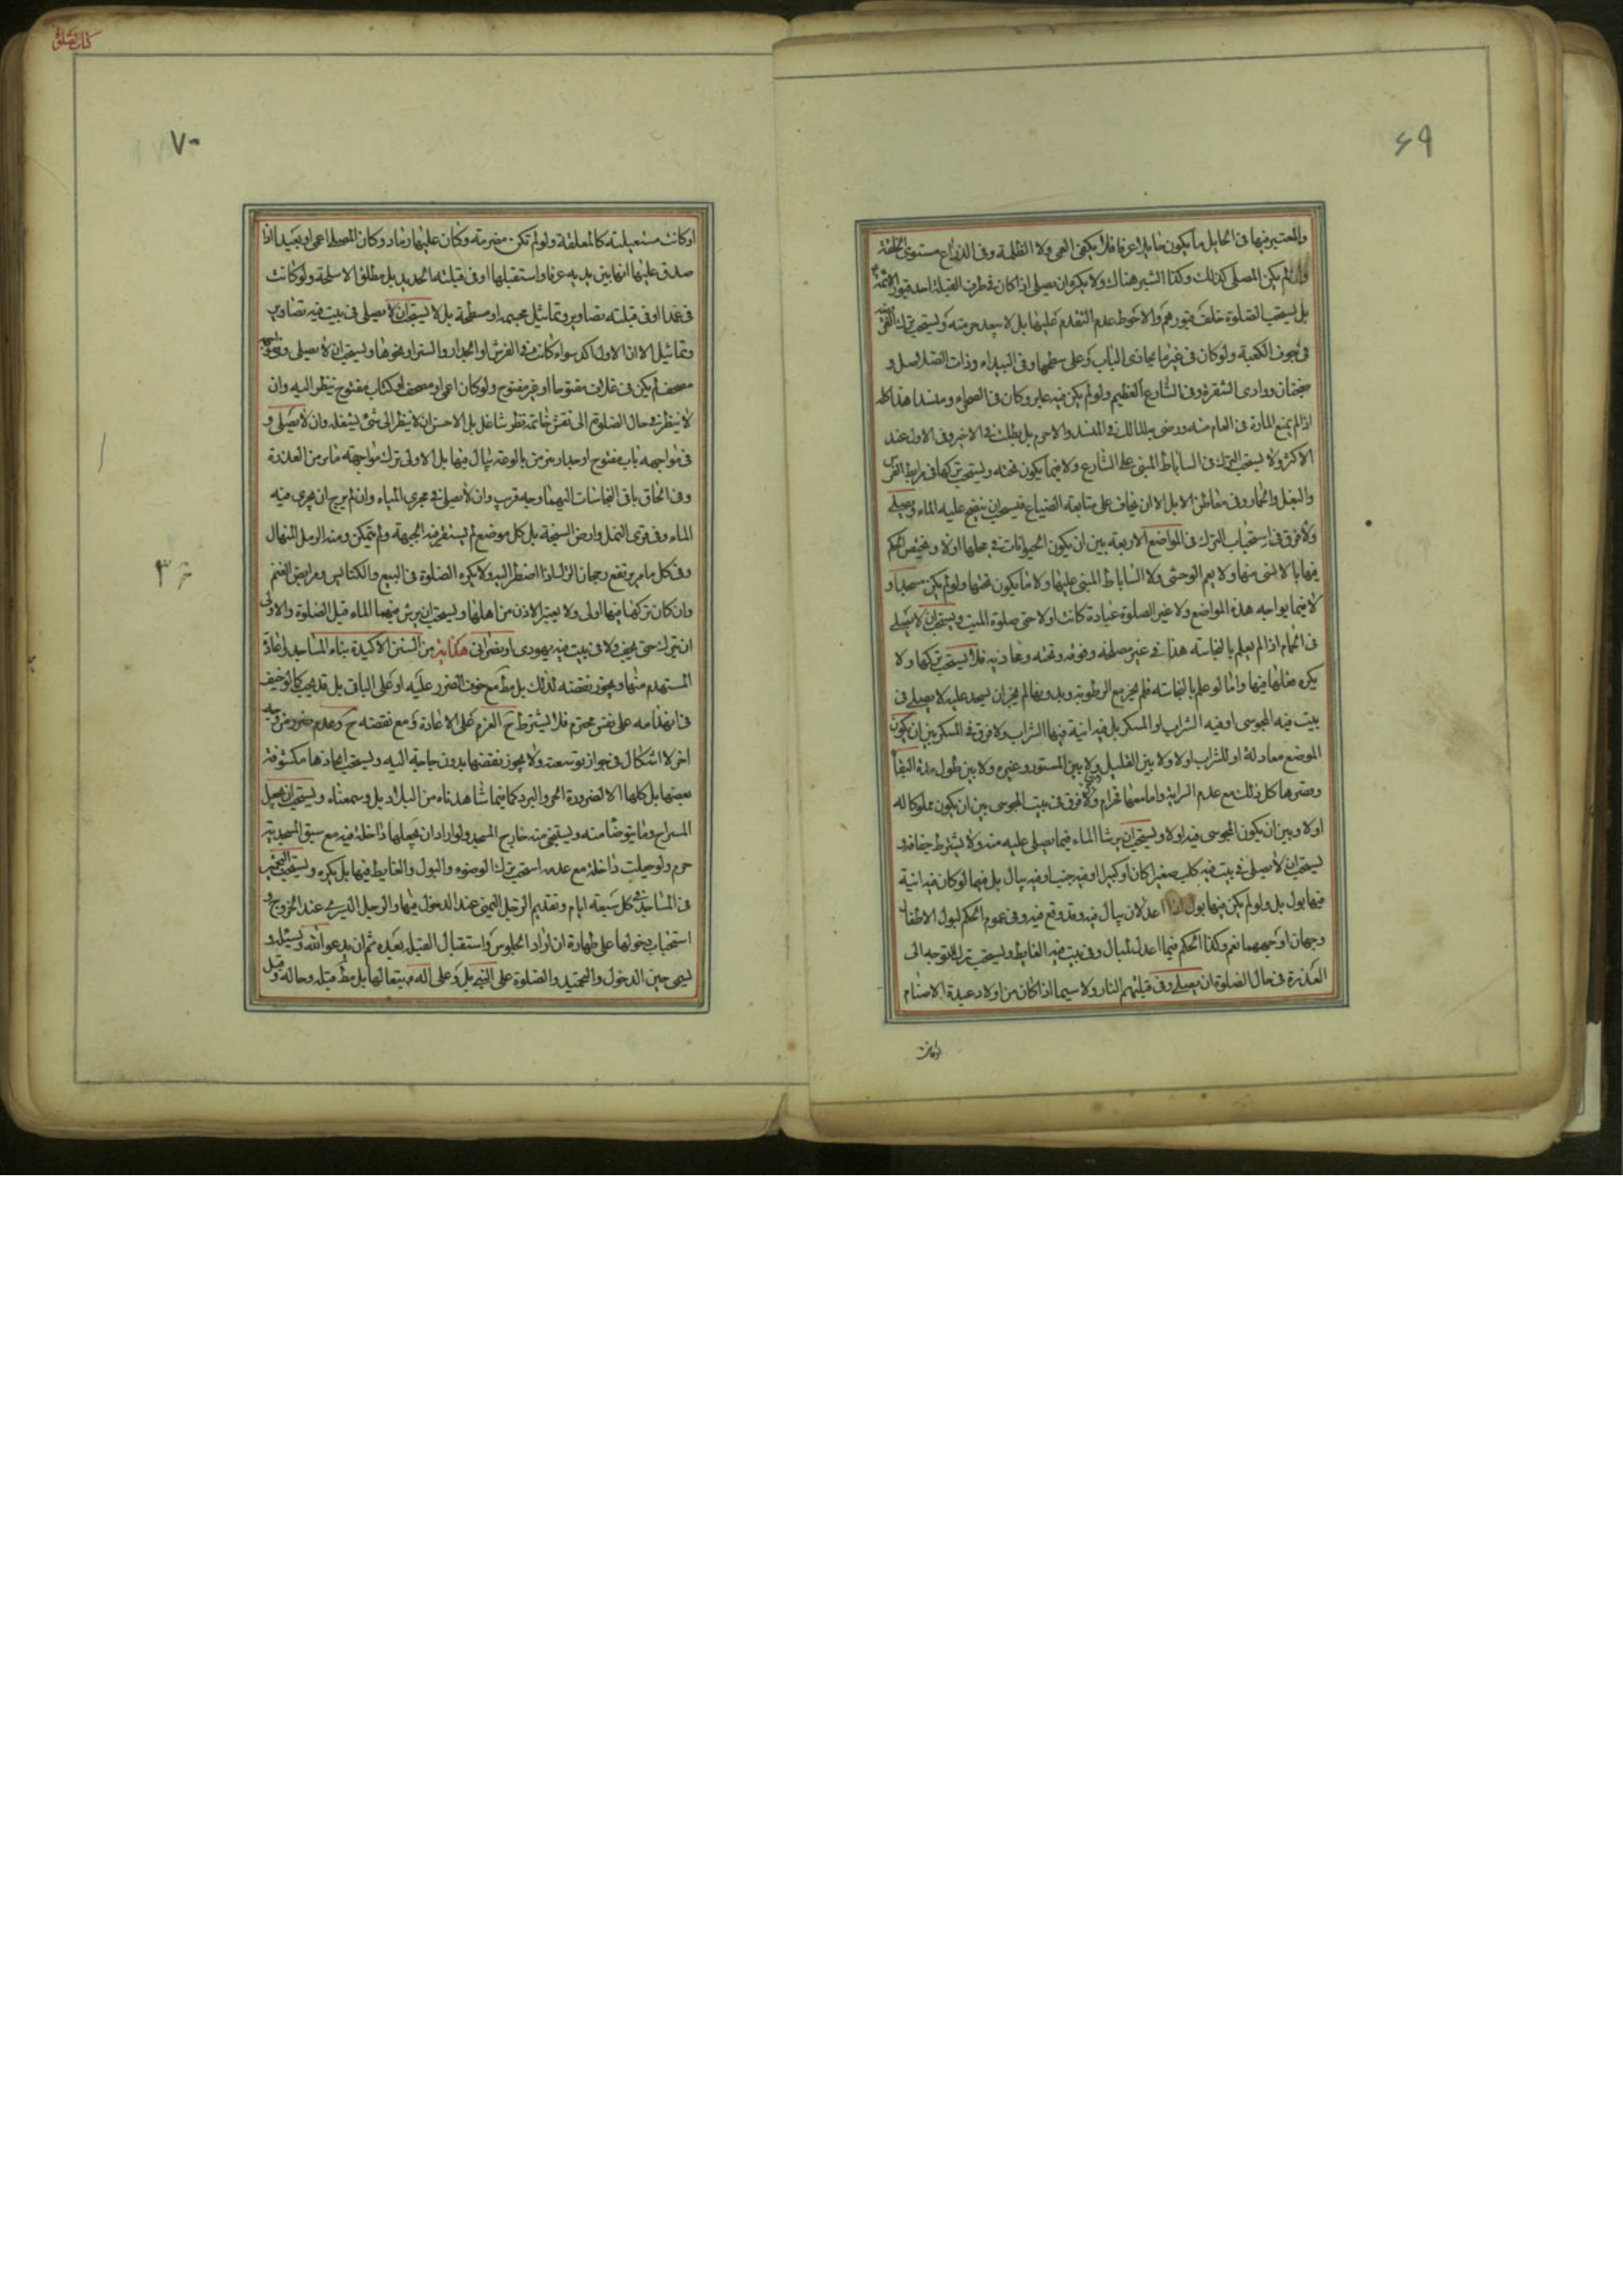 ۶۹
والمعتبر فيها فى الحايل ما يكون حايلا عرفا فلا يكفى العمى ولا الظلمة وفى الذراع مستوى الخلقة
وان لم يكن المصلى كذلك وكذا الشبر هناك ولا يكره ان يصلى اذا كان فى طرف القبلة احد قبور الائمة
بل يستحب الصلوة خلف قبورهم والاحوط عدم التقدم عليها بل لا يبعد حرمته ويستحب ترك
فى جوف الكعبة ولو كان فى غير ما يحاذى الباب وعلى سطحها وفى البيداء وذات الصلاصل و
ضجنان ووادى الشقرة وفى الشارع العظيم ولو لم يكن فيه عابر وكان فى الصحراء ومنسدا هذا كله
اذا لم يمنع المارة فى العام منه ورضى به المالك فى المنسد والا حرم بل بطلت فى الاخير وفى الاول عند
الاكثر ولا يستحب الترك فى الساباط المبنى على الشارع ولا فيما يكون تحته ويستحب تركها فى مرابط الفرس
والبغل والحمار وفى معاطن الابل الا ان يخاف على متاعه الضياع فيستحب ان ينضح عليه الماء ويصلى
ولا فرق فى استحباب الترك فى المواضع الاربعة بين ان يكون الحيوانات فى محلها اولا ويختص الحكم
فيها بالانسى منها ولا يعم الوحشى ولا الساباط المبنى عليها ولا ما يكون تحتها ولو لم يكن مسجدا و
لا فيما يواجه هذه المواضع ولا غير الصلوة عبادة كانت اولا حتى صلوة الميت ويستحب ان لا يصلى
فى الحمام اذا لم يعلم بالنجاسة هذا فى غير مسلخه وفوقه وتحته ومحاذيه فلا يستحب تركها ولا
يكره فعلها فيها واما لو علم بالنجاسة فلم يجز مع الرطوبة وبدونها لم يجز ان يسجد عليه ولا يصلى فى
بيت فيه المجوسى او فيه الشراب او المسكر بل فيه انية فيها الشراب ولا فرق فى المسكر بين ان يكون
الموضع معاد له او للشراب اولا ولا بين القليل ولا بين المستور وغيره ولا بين طول مدة البقاء
وقصرها كل ذلك مع عدم السراية واما معها فحرام ولا فرق فى بيت المجوسى بين ان يكون مملوكا له
اولا وبين ان يكون المجوسى فيه اولا ويستحب ان يرش الماء فيما يصلى عليه منه ولا يشترط جفافه و
يستحب ان لا يصلى فى بيت فيه كلب صغيرا كان او كبيرا او فيه جنب او فيه يبال بل فيما لو كان فيه انية
فيها بول بل ولو لم يكن فيها بول اذا اعد لان يبال فيه وقد وقع فيه وفى عموم الحكم لبول الاطفال
وجهان اوجههما نعم وكذا الحكم فيما اعد للمبال وفى بيت فيه الغايط ويستحب ترك التوجه الى
العذرة فى حال الصلوة ان يصلى وفى قبلتهم النار ولا سيما اذا كان من اولاد عبدة الاصنام
او كانت
كتاب الصلوة
۷۰
او كانت مشتعلة كالمعلقة ولو لم تكن مضرمة وكان عليها رماد وكان المصلى اعمى او بعيدا اذا
صدق عليها انها بين يديه عرفا واستقبلها او فى قبلته الحديد بل مطلق الاسلحة ولو كانت
فى غمد او فى قبلته تصاوير وتماثيل مجسمة او مسطحة بل لا يستحب ان لا يصلى فى بيت فيه تصاوير
وتماثيل الا ان الاول اكد سواء كانت فى الفرش او الجدار والستر او نحوها ويستحب ان لا يصلى وفى قبلته
مصحف لم يكن فى غلاف مفتوحا او غير مفتوح ولو كان اعمى او مصحف او كتاب مفتوح ينظر اليه وان
لا ينظر فى حال الصلوة الى نقش خاتمه نظر شاغل بل الاحسن ان لا ينظر الى شئ يشغله وان لا يصلى و
فى مواجهه باب مفتوح او جدار ينز من بالوعة يبال فيها بل الاولى ترك مواجهة من العذرة
وفى الحاق باقى النجاسات اليهما وجه قريب وان لا يصلى فى مجرى المياه وان لم يرج ان يجرى فيه
الماء وفى قرى النمل وارض السبخة بل كل موضع لم يستقر فيه الجبهة ولم يتمكن ومنه الرمل المنهال
وفى كل ما مر يرتفع رجحان الترك اذا اضطر اليه ولا يكره الصلوة فى البيع والكنايس ومرابض الغنم
وان كان تركها فيها اولى ولا يعتبر الاذن من اهلها ويستحب ان يرش فيهما الماء قبل الصلوة والاولى
ان يترك حتى يجف ولا فى بيت فيه يهودى او نصرانى هداية من السنن الاكيدة بناء المساجد واعادة
المستهدم منها ويجوز نقضه لذلك بل مط مع خوف الضرر عليه او على الباقى بل قد يجب كما لو خيف
فى انهدامه على نفس محترم فلا يشترط ح العزم على الاعادة ومع نقضه ح وعدم
اخر لا اشكال فى جواز توسعته ولا يجوز نقضها بدون حاجة اليه ويستحب اتخاذها مكشوفة
بعضها بل كلها الا لضرورة الحر والبرد كما فيما شاهدناه من البلاد بل وسمعناه ويستحب ان يجعل
السراج وما يتوضأ منه ويستنجى منه خارج المسجد ولو اراد ان يجعلها داخلة فيه مع سبق المسجدية
حرم ولو جعلت داخلة مع عدمه استحب ترك الوضوء والبول والغايط فيها بل يكره ويستحب
فى المساجد فى كل سبعة ايام وتقديم الرجل اليمنى عند الدخول فيها والرجل اليسرى عند الخروج و
استحباب دخولها على طهارة ان اراد الجلوس واستقبال القبلة بعده ثم ان يدعو الله ويسئله و
يسمى حين الدخول والتحميد والصلوة على النبى بل وعلى اله
۳